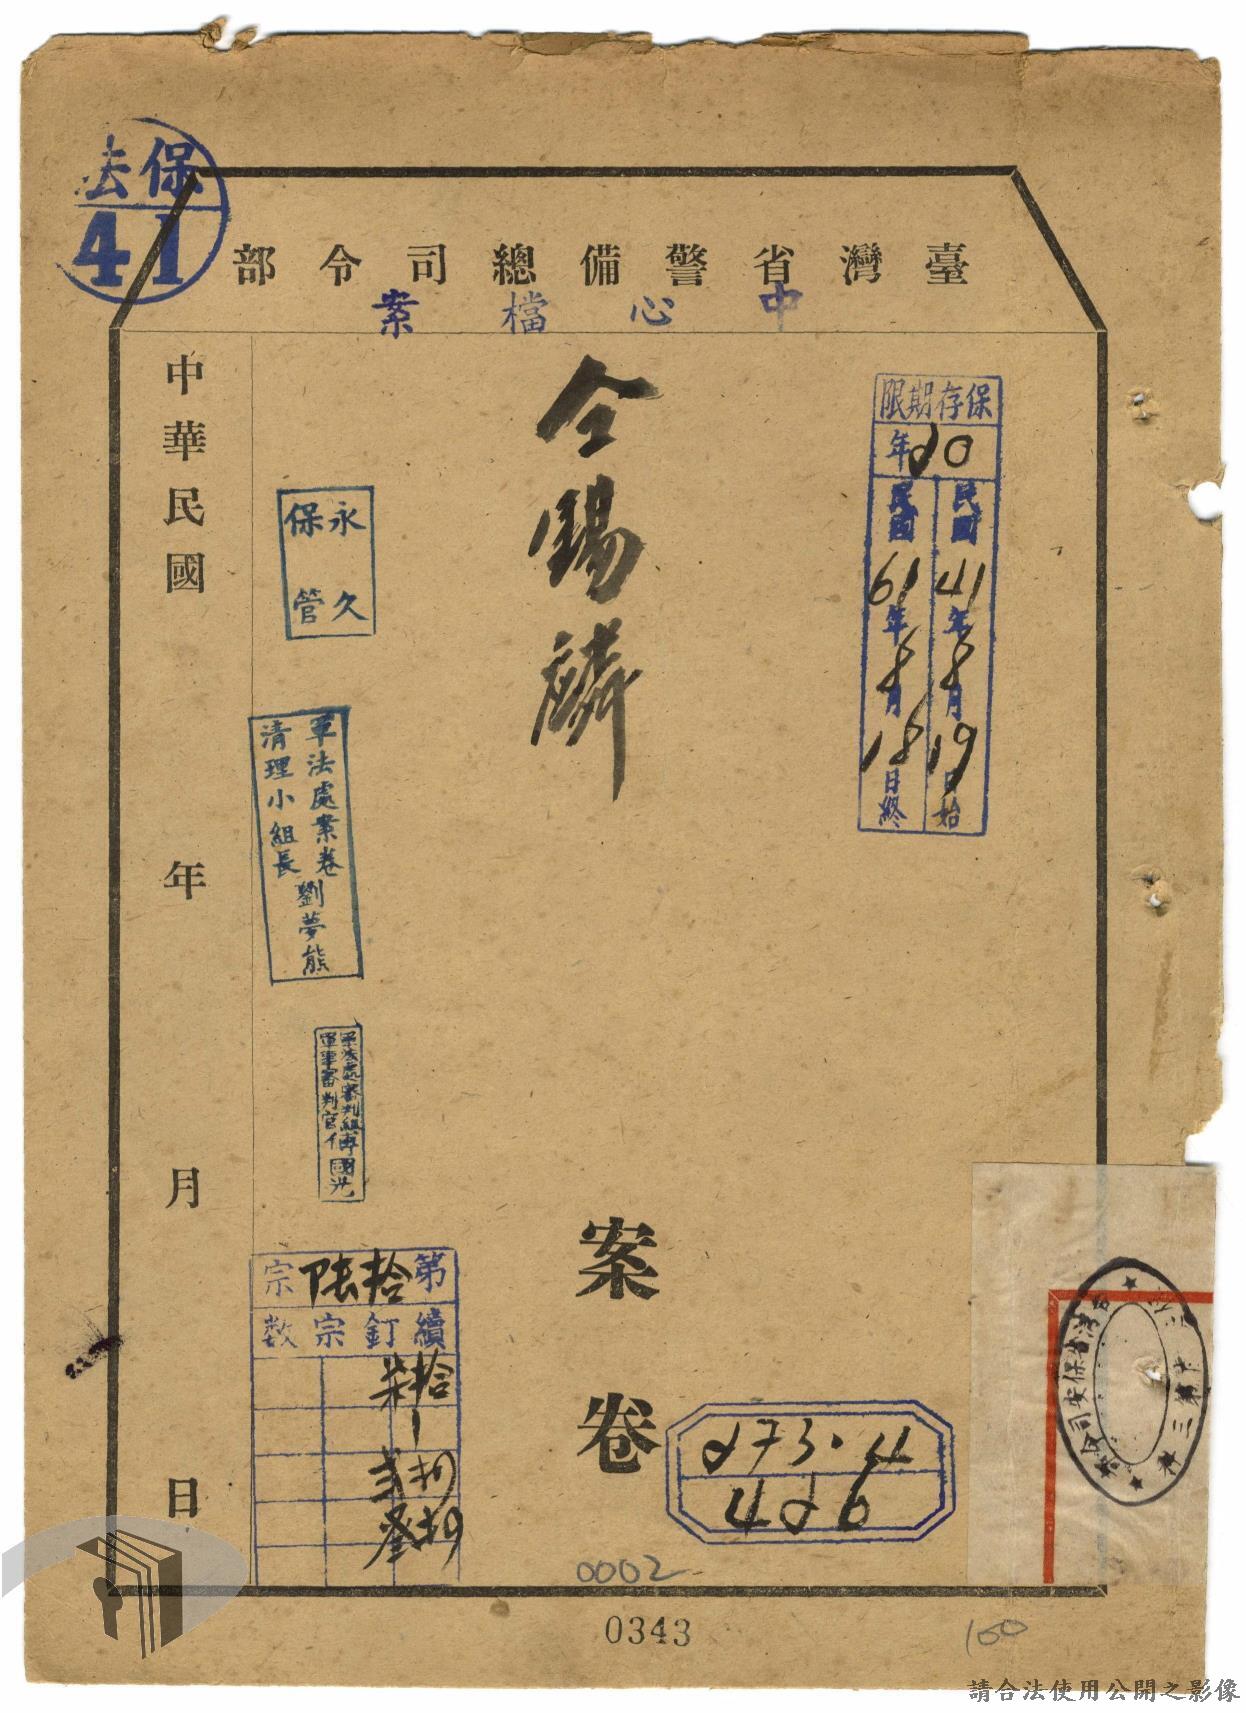 保法
41
臺灣省警備總司令部
中心檔案
保存期限
20年
民國41年8月19日始
民國61年8月18日終
仝錫麟
案卷
永久
保管
軍法處案卷
清理小組長
劉夢熊
軍法處審判組
軍事審判官
傅國光
第拾陸宗
續訂宗数
拾柒
中華民國 年 月 日
273.4
426
0002
0343
100
台灣省保安司令部
第三
請合法使用公開之影像